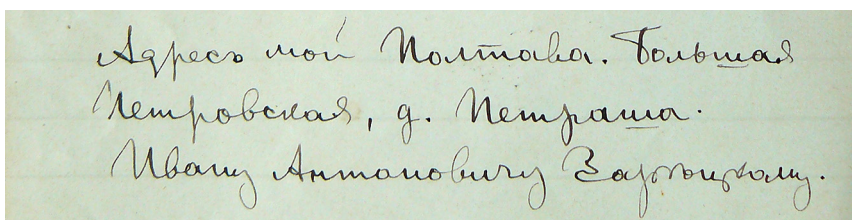 Адресъ мой Полтава. Большая
Петровская, д. Петраша.
Ивану Антоновичу Зарѣцкому.